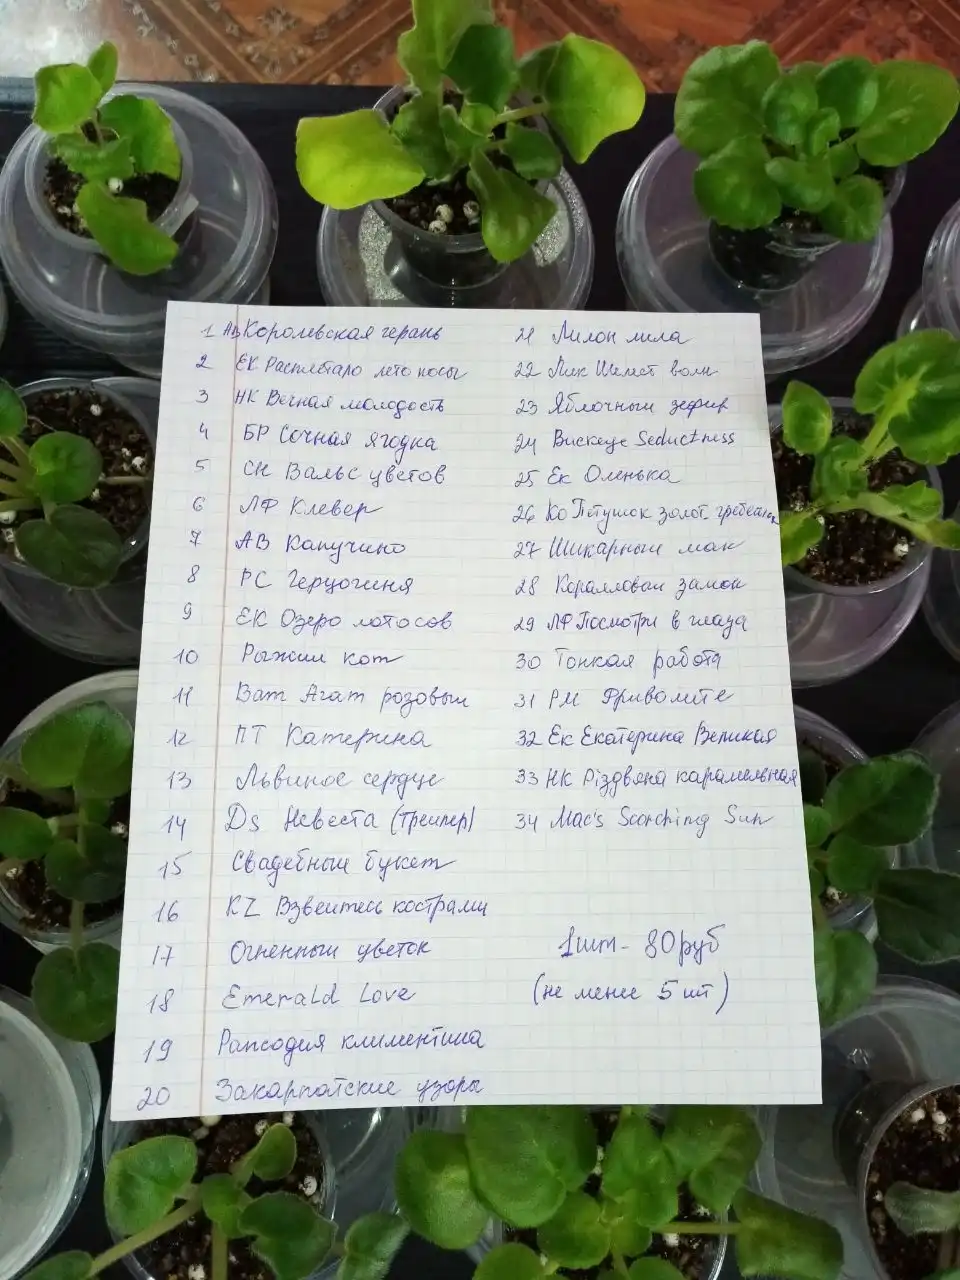 1 АВ Королевская герань
2 ЕК Расплетало лето косы
3 НК Вечная молодость
4 БР Сочная ягодка
5 СК Вальс цветов
6 ЛФ Клевер
7 АВ Капучино
8 РС Герцогиня
9 ЕК Озеро лотосов
10 Рыжий кот
11 Ват Агат розовый
12 ПТ Катерина
13 Львиное сердце
14 Ds Невеста (трейлер)
15 Свадебный букет
16 KZ Взвейтесь кострами
17 Огненный цветок
18 Emerald Love
19 Рапсодия климентина
20 Закарпатские узоры
21 Лилон лила
22 Лик Шелест волн
23 Яблочный зефир
24 Buckeye Seductress
25 Ек Оленька
26 Ко Петушок золот. гребешок
27 Шикарный мак
28 Коралловый замок
29 ЛФ Посмотри в глаза
30 Тонкая работа
31 РМ Фриволите
32 Ек Екатерина Великая
33 НК Різдвяна карамельная
34 Mac's Scorching Sun
1 шт - 80 руб
(не мение 5 шт)